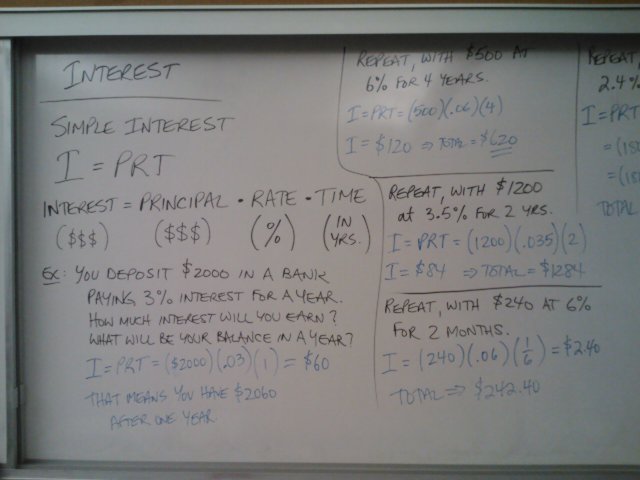 INTEREST
SIMPLE INTEREST
I = PRT
INTEREST = PRINCIPAL · RATE · TIME
($$$) ($$$) (%) (IN YRS.)
EX: YOU DEPOSIT $2000 IN A BANK
PAYING 3% INTEREST FOR A YEAR.
HOW MUCH INTEREST WILL YOU EARN?
WHAT WILL BE YOUR BALANCE IN A YEAR?
I = PRT = ($2000)(.03)(1) = $60
THAT MEANS YOU HAVE $2060
AFTER ONE YEAR.
REPEAT, WITH $500 AT
6% FOR 4 YEARS.
I = PRT = (500)(.06)(4)
I = $120 ⇒ TOTAL = $620
REPEAT, WITH $1200
at 3.5% FOR 2 YRS.
I = PRT = (1200)(.035)(2)
I = $84 ⇒ TOTAL = $1284
REPEAT, WITH $240 AT 6%
FOR 2 MONTHS.
I = (240)(.06)(1/6) = $2.40
TOTAL ⇒ $242.40
REPEAT,
2.4%
I = PRT
= (18
= (18
TOTAL